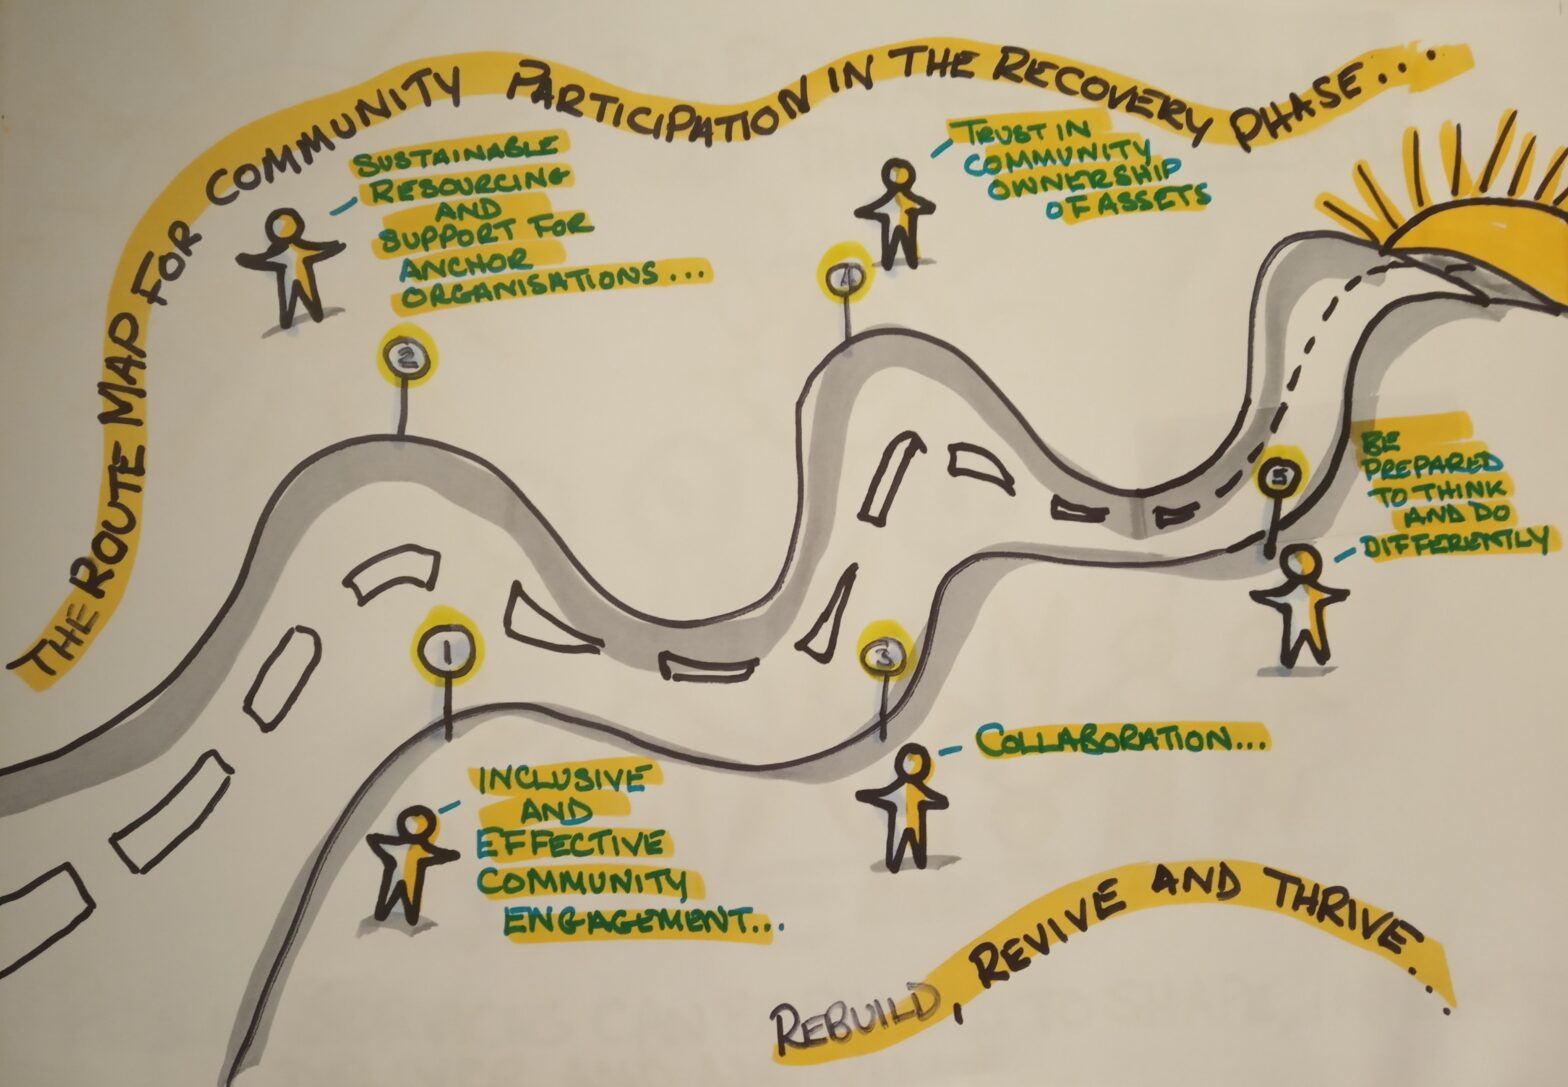 THE ROUTE MAP FOR COMMUNITY PARTICIPATION IN THE RECOVERY PHASE...
SUSTAINABLE
RESOURCING
AND
SUPPORT FOR
ANCHOR
ORGANISATIONS...
2
TRUST IN
COMMUNITY
OWNERSHIP
OF ASSETS
4
BE
PREPARED
TO THINK
AND DO
DIFFERENTLY
5
1
INCLUSIVE
AND
EFFECTIVE
COMMUNITY
ENGAGEMENT...
3
COLLABORATION...
REBUILD, REVIVE AND THRIVE...